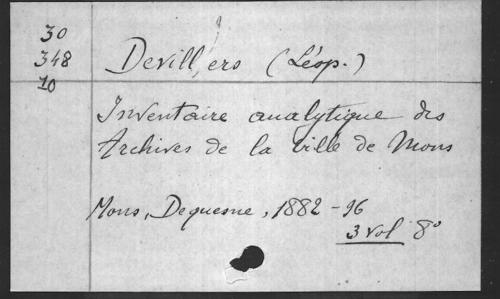 30
348
10
Devillers (Léop.)
Inventaire analytique des
Archives de la ville de Mons
Mons, Dequesne, 1882-96
3 vol 8°